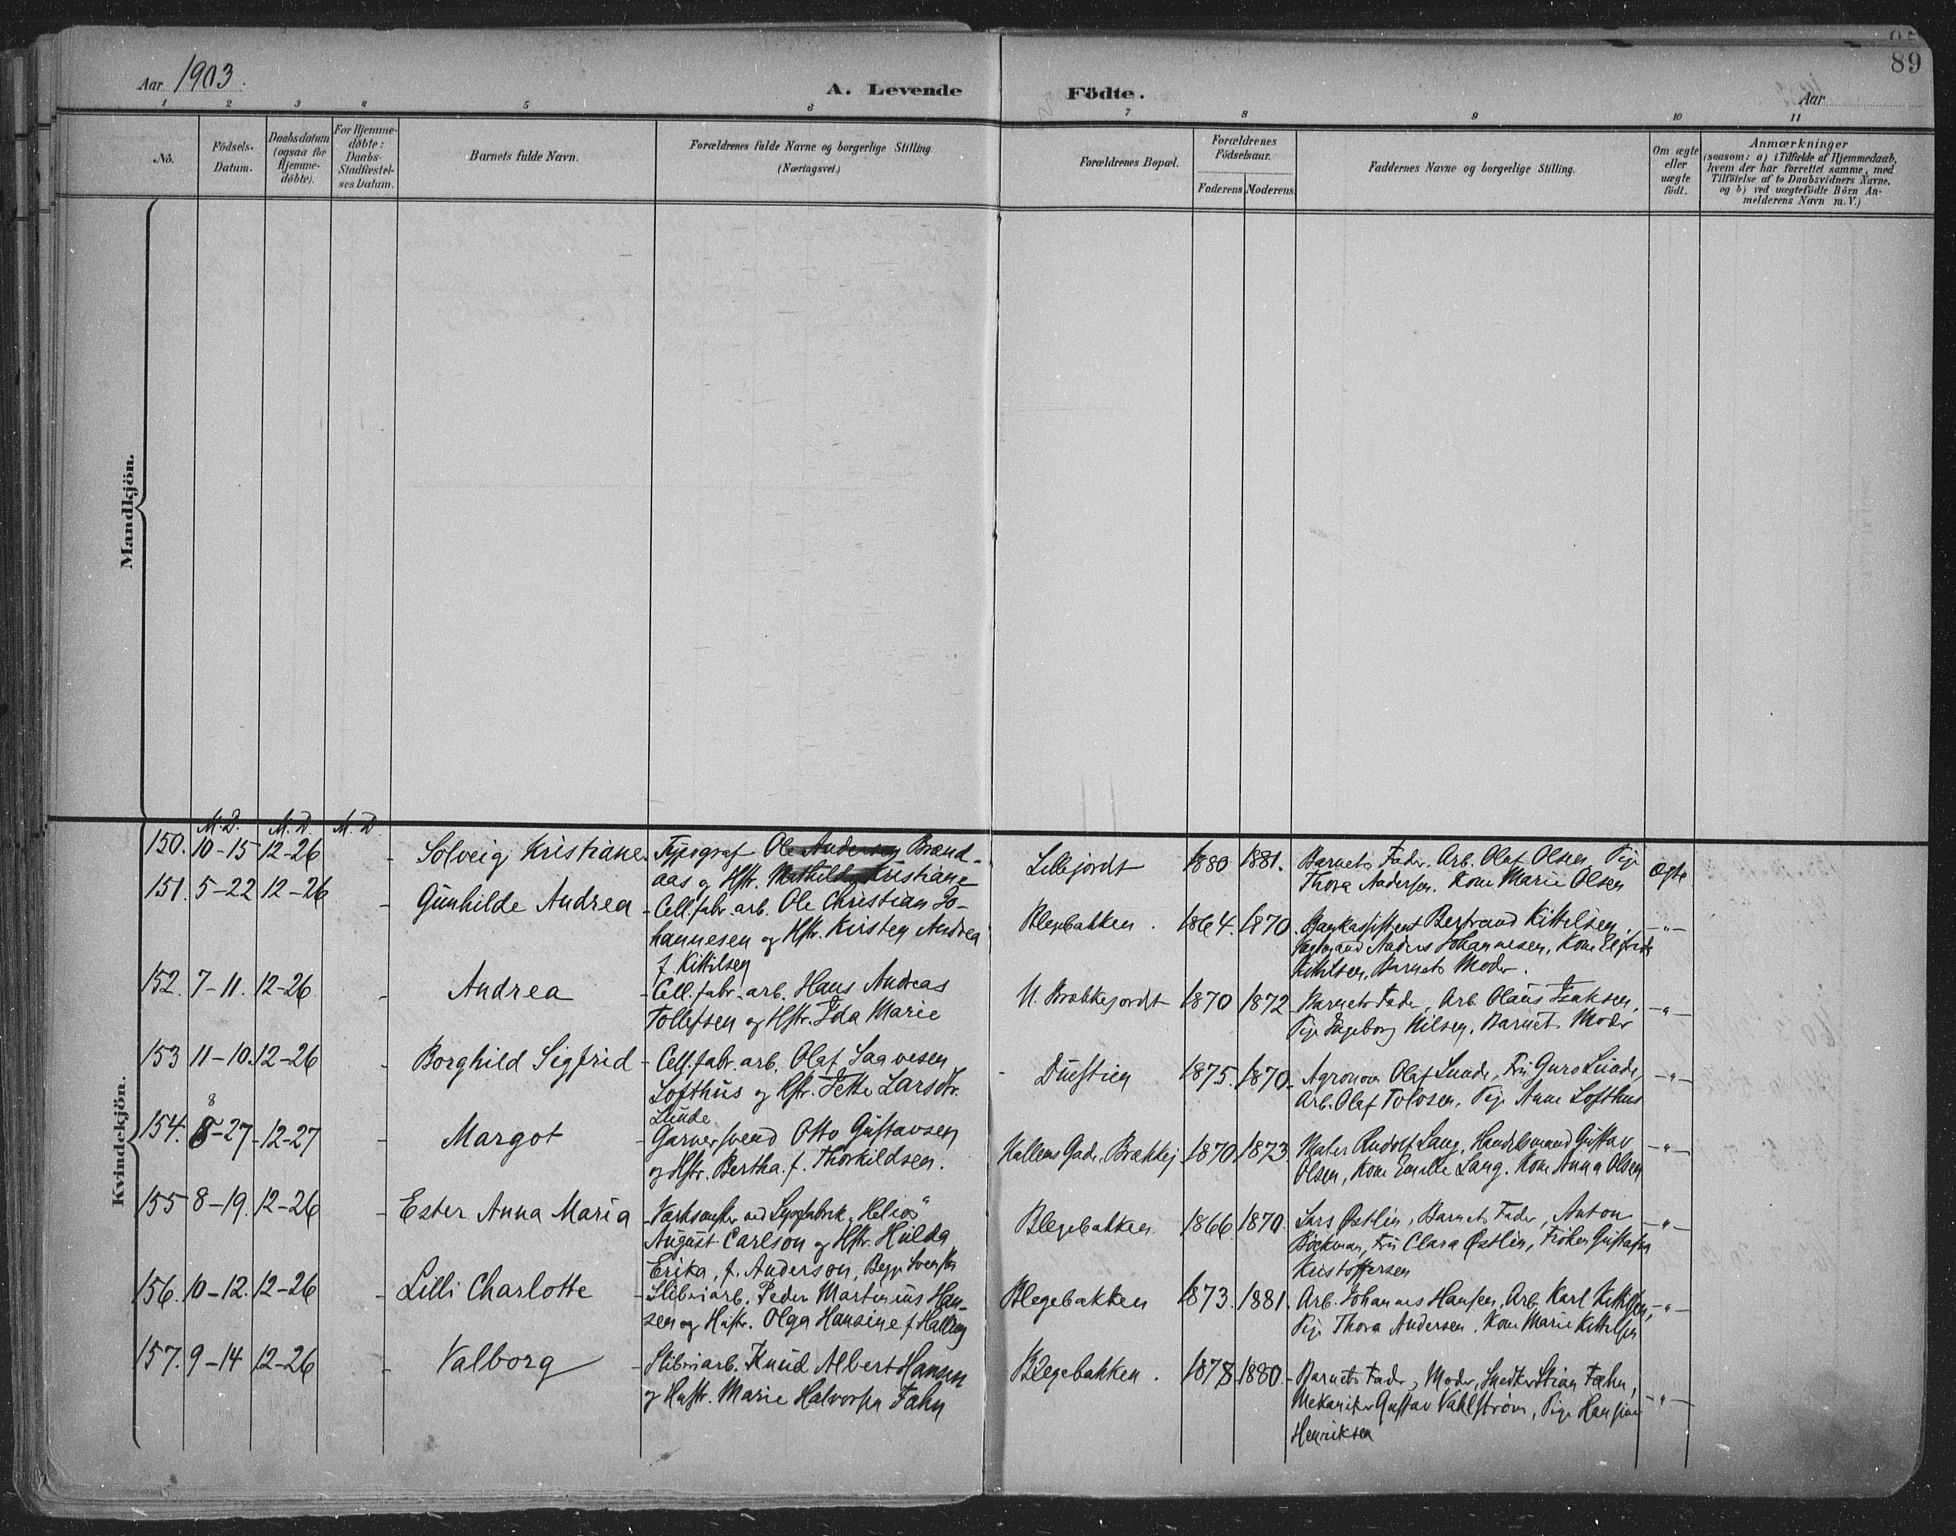 89
Aar 1903.
A. Levende Födte.
Aar
1 2 3 4 5 6 7 8 9 10 11
No.
Födsels-
Datum.
Daabsdatum
(ogsaa for
Hjemme-
döbte).
For Hjemme-
döbte:
Daabs-
Stadfæstel-
ses Datum.
Barnets fulde Navn.
Forældrenes fulde Navne og borgerlige Stilling.
(Næringsvei.)
Forældrenes Bopæl.
Forældrenes
Födselsaar.
Faderens Moderens.
Faddernes Navne og borgerlige Stilling.
Om ægte
eller
uægte
födt.
Anmærkninger
(saasom: a) i Tilfælde af Hjemmedaab,
hvem der har forrettet samme, med
Tilföielse af to Daabsvidners Navne,
og b) ved uægtefödte Börn An-
melderens Navn m. V.)
Mandkjön.
Kvindekjön.
M. D. M. D. M. D.
150. 10-15 12-26 - Solveig Kristiane - Typograf Ole Andersen Brænd-
aas og Hstr. Mathilde Kristiane
Lillejordt 1880 1881. Barnets Fader. Arb. Olaf Olsen, Pige
Thora Andersen. Kone Marie Olsen
Ægte
151. 5-22 12-26 - Gunhilde Andrea - Cell. fabr. arb. Ole Christian Jo-
hannesen og Hstr. Kirsten Andrea
f. Kittilsen
Blegebakken. 1864. 1870. Bankassistent Bertrand Kittilsen,
Anders Johannesen, Kone
Kittilsen, Barnets Moder.
-"-
152. 7-11. 12-26 - Andrea - Cell. fabr. arb. Hans Andreas
Tollefsen og Hstr. Ida Marie
N. Brækkejordt 1870 1872 Barnets Fader, Arb. Olaus Isaksen,
Pige Ingeborg Nilsen, Barnets Moder
-"-
153 11-10. 12-26 - Borghild Sigfrid - Cell. fabr. arb. Olaf Saavesen
Lofthus og Hstr. Larsdtr.
Lunde
Duestien 1875. 1870. Agronom Olaf Lunde, Fru Guro Lunde,
Arb. Olaf Tovsen, Pige Anne Lofthus
-"-
154. 8-27 12-27 - Margot - Garversvend Otto Gustavsen
og Hstr. Bertha f. Thorkildsen.
Hallens Gade, Brækkej 1870 1873. Maler Rudolf Lang, Handelsmand Gustav
Olsen, Kone Emelie Lang. Kone Anna Olsen
-"-
155 8-19. 12-26 - Ester Anna Maria - Værksmester ved Lysefabrik "Helios"
August Carlson og Hstr. Hulda
Erika, f. Anderson, Begge Svensker
Blegebakken 1866 1870. Lars Østlin, Barnets Fader, Anton
Böckman, Fru Clara Østlin, Frøken Gustafva
Kristoffersen
-"-
156. 10-12. 12-26 - Lilli Charlotte - Sliberiarb. Peder Martinius Han-
sen og Hustr. Olga Hansine f. Halling
Blegebakken 1873. 1881. Arb. Johannes Hansen, Arb. Karl Kittilsen,
Pige Thora Andersen. Kone Marie Kittilsen
-"-
157. 9-14 12-26 - Valborg - Sliberiarb. Knud Albert Hansen
og Hustr. Marie Halvorsen Fæhn
Blegebakken. 1878 1880 - Barnets Fader og Moder, Snedker Stian Fæhn,
Mekaniker Gustav Vahlstrøm, Pige Hansine
Henriksen
-"-